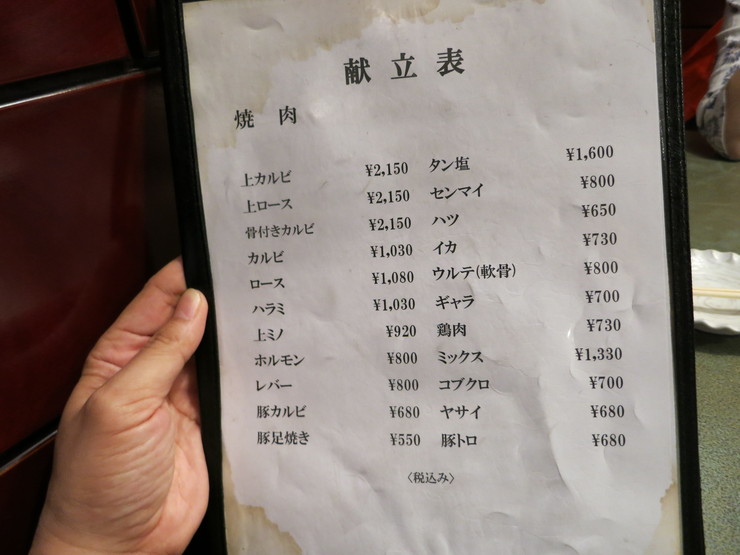 献立表
焼肉
上カルビ ¥2,150 タン塩 ¥1,600
上ロース ¥2,150 センマイ ¥800
骨付きカルビ ¥2,150 ハツ ¥650
カルビ ¥1,030 イカ ¥730
ロース ¥1,080 ウルテ(軟骨) ¥800
ハラミ ¥1,030 ギャラ ¥700
上ミノ ¥920 鶏肉 ¥730
ホルモン ¥800 ミックス ¥1,330
レバー ¥800 コブクロ ¥700
豚カルビ ¥680 ヤサイ ¥680
豚足焼き ¥550 豚トロ ¥680
〈税込み〉